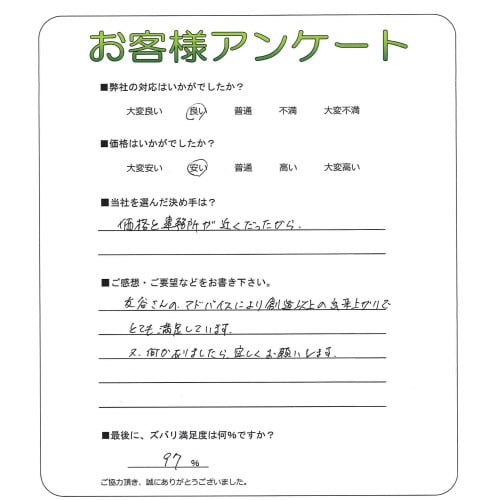 お客様アンケート
■弊社の対応はいかがでしたか？
大変良い 良い 普通 不満 大変不満
■価格はいかがでしたか？
大変安い 安い 普通 高い 大変高い
■当社を選んだ決め手は？
価格と事務所が近くだったから、
■ご感想・ご要望などをお書き下さい。
友谷さんの、アドバイスにより創造以上の出来上がりで
とても満足しています。
又、何かありましたら、宜しくお願いします。
■最後に、ズバリ満足度は何％ですか？
97 ％
ご協力頂き、誠にありがとうございました。